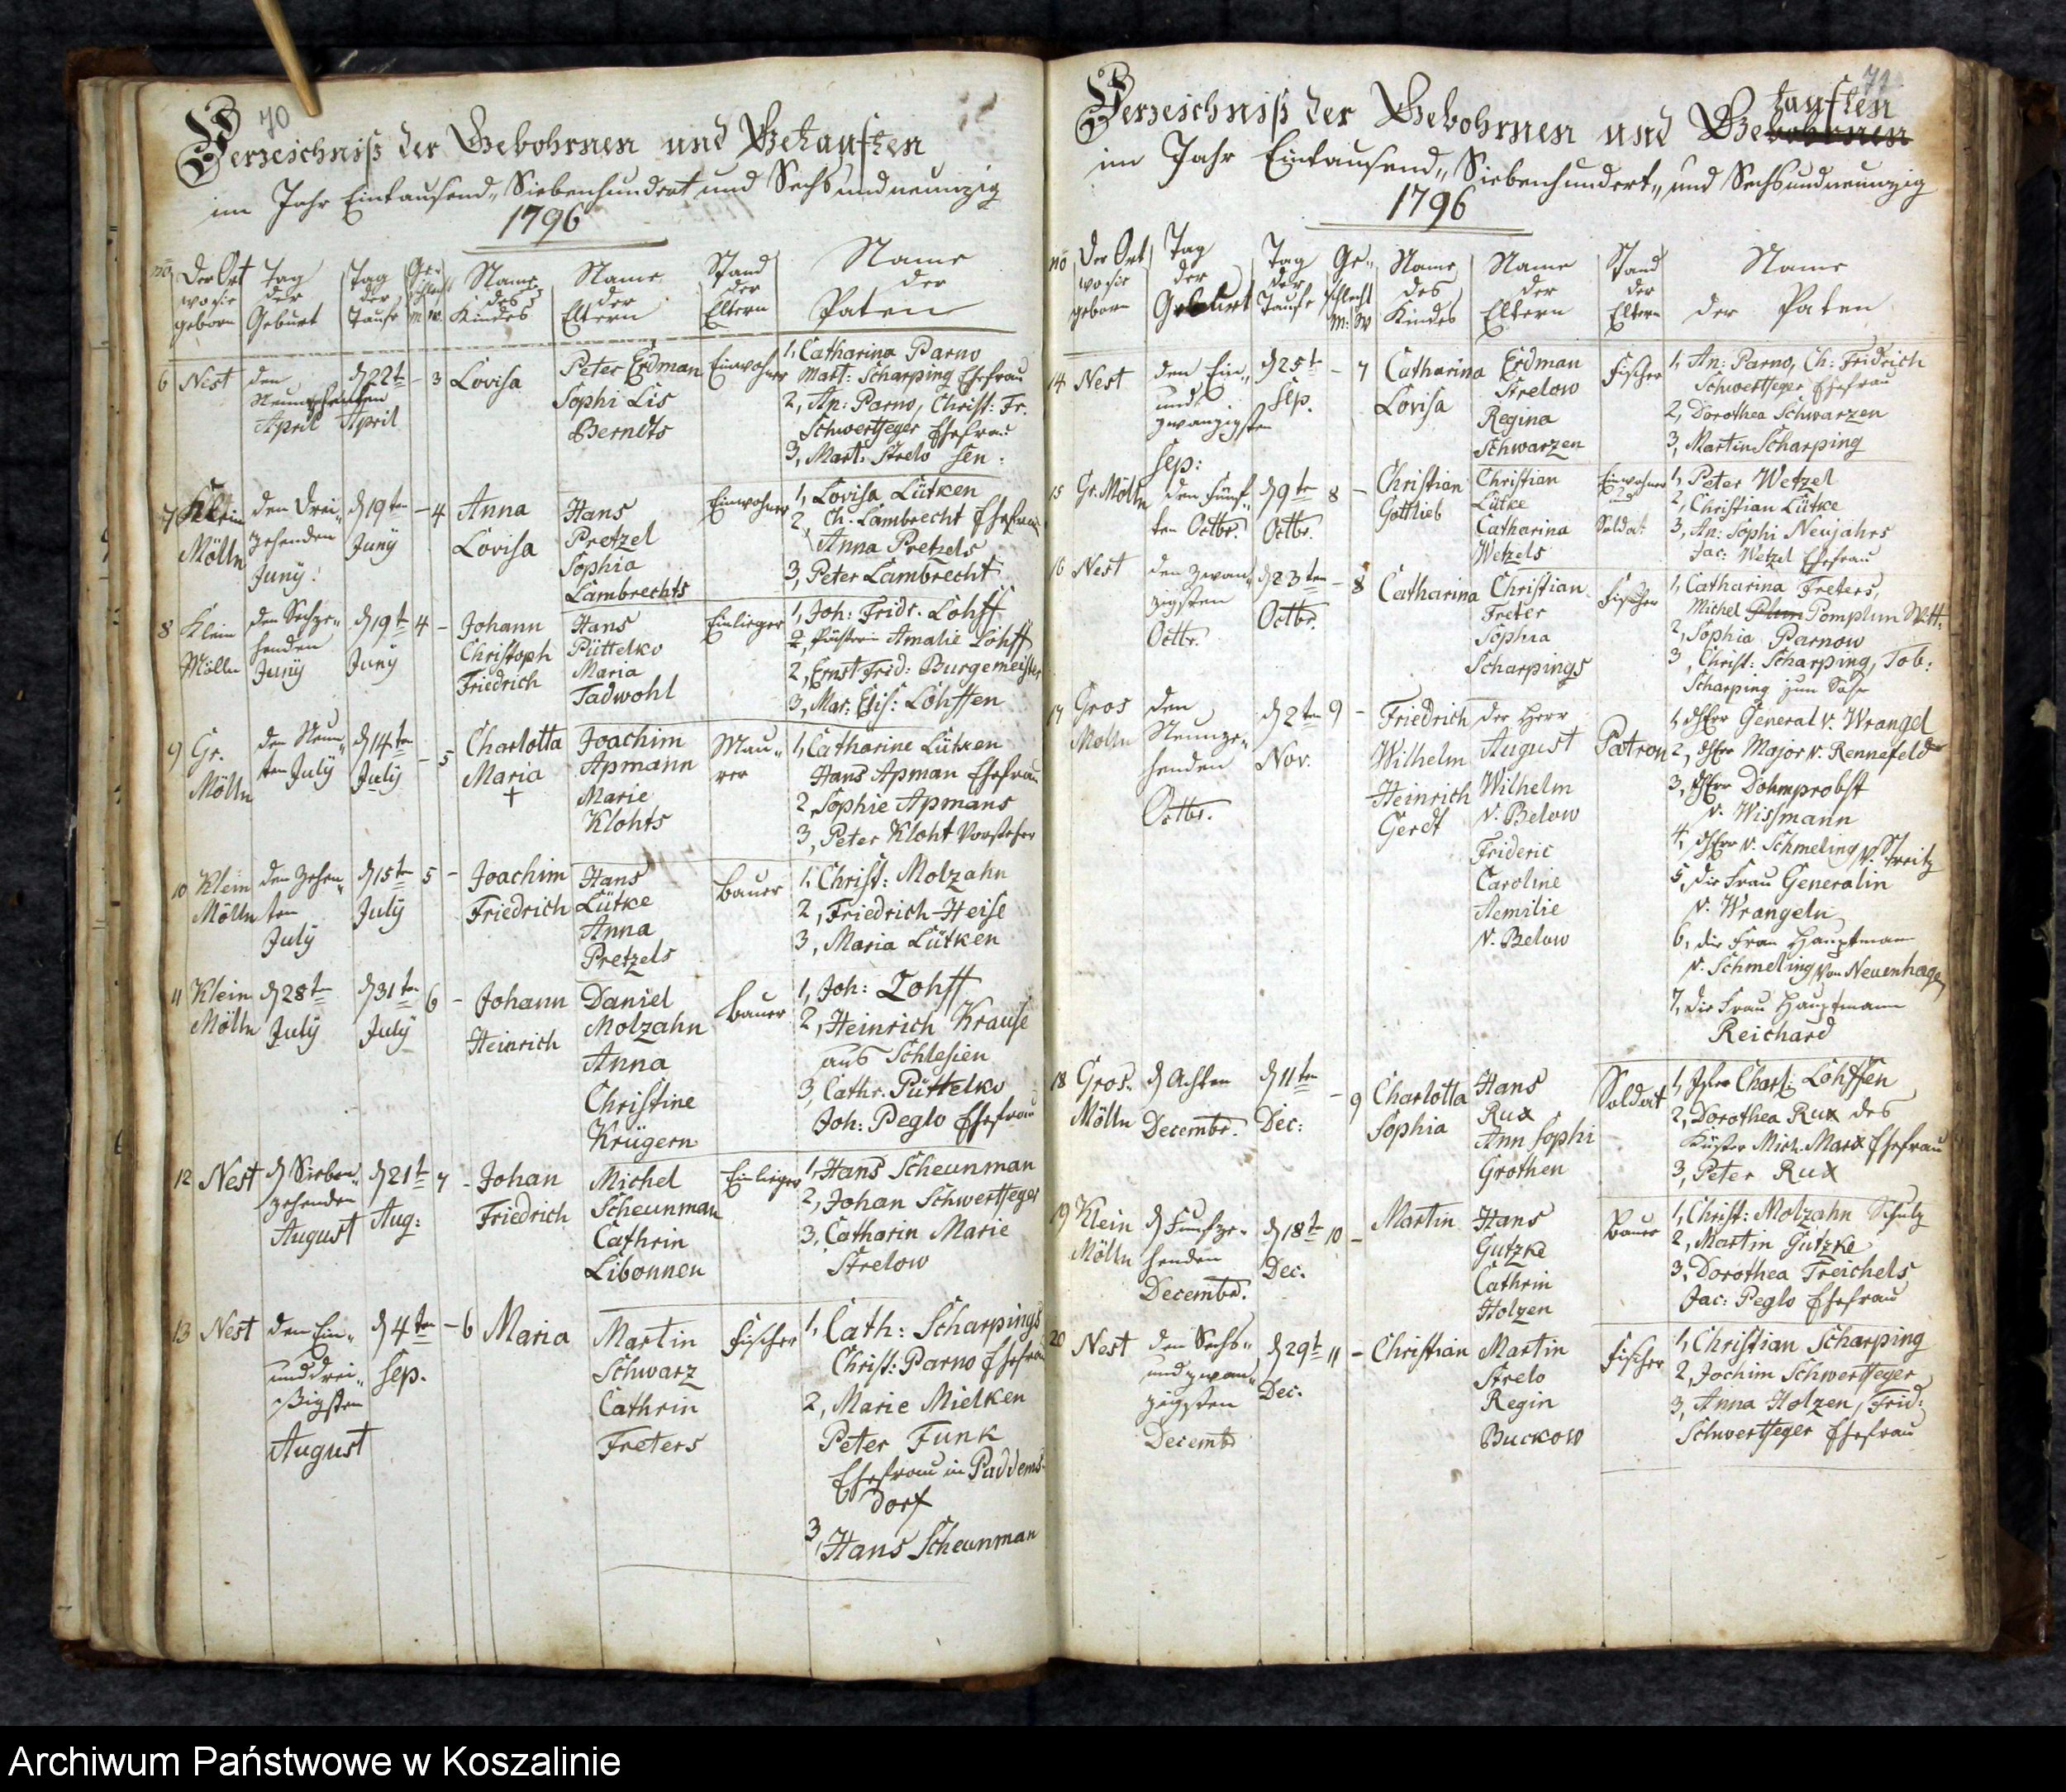 70
Verzeichniß der Gebohrnen und Getauften
im Jahr Eintausend„ Siebenhundert und Sechsundneunzig
1796
no Der Ort wo sie geborn
Tag der Geburt
Tag der Taufe
Geschlecht m. w.
Name des Kindes
Name der Eltern
Stand der Eltern
Name der Paten
6 Nest
den Neunzehenten April
d 22t April
- 3
Lovisa
Peter Erdman
Sophi Lis
Berndts
Einwohner
1, Catharina Parno
Mart: Scharping Ehefrau
2, An: Parno, Christ: Fr.
Schwertfeger Ehefrau
3, Mart: Strelo sen:
7 Klein
Mölln
den Drei„
zehenden
Juny.
d 19ten
Juny
- 4
Anna
Lovisa
Hans
Pretzel
Sophia
Lambrechts
Einwohner
1, Lovisa Lütken
2, Ch. Lambrecht Ehefrau
Anna Pretzels
3, Peter Lambrecht
8 Klein
Mölln
den Sechze„
henden
Juny
d 19t
Juny
4 -
Johann
Christoph
Friedrich
Hans
Püttelko
Maria
Tadwohl
Einlieger
1, Joh: Fridr. Lohff
Amalie Lohff
2, Ernst Frid: Burgemeister
3, Mar: Elis: Lohffen
9 Gr.
Mölln
den Neun„
ten July
d 14ten
July
- 5
Charlotta
Maria
+
Joachim
Apmann
Marie
Klohts
Mau„
rer
1, Catharine Lütken
Hans Apman Ehefrau
2, Sophie Apmans
3, Peter Kloht Vorsteher
10 Klein
Mölln
den Zehen„
ten
July
d 15ten
July
5 -
Joachim
Friedrich
Hans
Lütke
Anna
Pretzels
Bauer
1, Christ: Molzahn
2, Friedrich Heise
3, Maria Lütken
11 Klein
Mölln
d 28ten
July
d 31ten
July
6 -
Johann
Heinrich
Daniel
Molzahn
Anna
Christine
Krügern
Bauer
1, Joh: Lohff
2, Heinrich Krause
aus Schlesien
3, Cathr. Püttelko
Joh: Peglo Ehefrau
12 Nest
d Sieben„
zehenden
August
d 21t
Aug:
7 -
Johan
Friedrich
Michel
Scheunman
Cathrin
Libonnen
Einlieger
1, Hans Scheunman
2, Johan Schwertfeger
3, Catharin Marie
Strelow
13 Nest
den Ein„
und drei„
ßigsten
August
d 4ten
Sep.
- 6
Maria
Martin
Schwarz
Cathrin
Freters
Fischer
1, Cath: Scharpings
Christ: Parno Ehefrau
2, Marie Mielken
Peter Funk
Ehefrau in Puddems
dorf
3, Hans Scheunman
71
Verzeichniß der Gebohrnen und Gebohrnen tauften
im Jahr Eintausend„ Siebenhundert„ und Sechsundneunzig
1796
no Der Ort wo sie geborn
Tag der Geburt
Tag der Taufe
Ge„ schlecht M: W
Name des Kindes
Name der Eltern
Stand der Eltern
Name der Paten
14 Nest
den Ein„
und
zwanzigsten
Sep:
d 25t
Sep.
- 7
Catharina
Lovisa
Erdman
Strelow
Regina
Schwarzen
Fischer
1, An: Parno, Ch: Fridrich
Schwertfeger Ehefrau
2, Dorothea Schwarzen
3, Martin Scharping
15 Gr. Mölln
den Fünf„
ten Octbr.
d 9te
Octbr.
8 -
Christian
Gottlieb
Christian
Lütke
Catharina
Wetzels
Einwohner
und
Soldat
1, Peter Wetzel
2, Christian Lütke
3, An: Sophi Neujahrs
Jac: Wetzel Ehefrau
16 Nest
den zwan„
zigsten
Octbr.
d 23ten
Octbr.
- 8
Catharina
Christian
Freter
Sophia
Scharpings
Fischer
1, Catharina Freters,
Michel Plum Pomplun Witt:
2, Sophia Parnow
3, Christ: Scharping, Tob:
Scharping zum Sohr
17 Gros
Mölln
den
Neunze„
henden
Octbr.
d 2ten
Nov.
9 -
Friedrich
Wilhelm
Heinrich
Gerdt
der Herr
August
Wilhelm
v. Below
Frideric
Caroline
Aemilie
v. Below
Patron
1, d Herr General v. Wrangel
2, d Herr Major v. Rennefeld
3, d Herr Dohmprobst
v. Wissmann
4, d Herr v. Schmeling v. Streitz
5, die Frau Generalin
v. Wrangeln
6, die Frau Hauptmann
v. Schmeling von Neuenhagen
7, die Frau Hauptmann
Reichard
18 Gros.
Mölln
d Achten
Decembr.
d 11ten
Dec:
- 9
Charlotta
Sophia
Hans
Rux
Ann Sophi
Grothen
Soldat
1, Charl: Lohffen
2, Dorothea Rux des
Küster Mich. Marx Ehefrau
3, Peter Rux
19 Klein
Mölln
d Funfze„
henden
Decembr.
d 18t
Dec.
10 -
Martin
Hans
Gutzke
Cathrin
Holzen
Bauer
1, Christ: Molzahn Schulz
2, Martin Gutzke
3, Dorothea Treichels
Jac: Peglo Ehefrau
20 Nest
den Sechs„
und zwan„
zigsten
Decemb
d 29t
Dec.
11 -
Christian
Martin
Strelo
Regin
Buckow
Fischer
1, Christian Scharping
2, Jochim Schwertfeger
3, Anna Holzen, Frid:
Schwertfeger Ehefrau
Archiwum Państwowe w Koszalinie